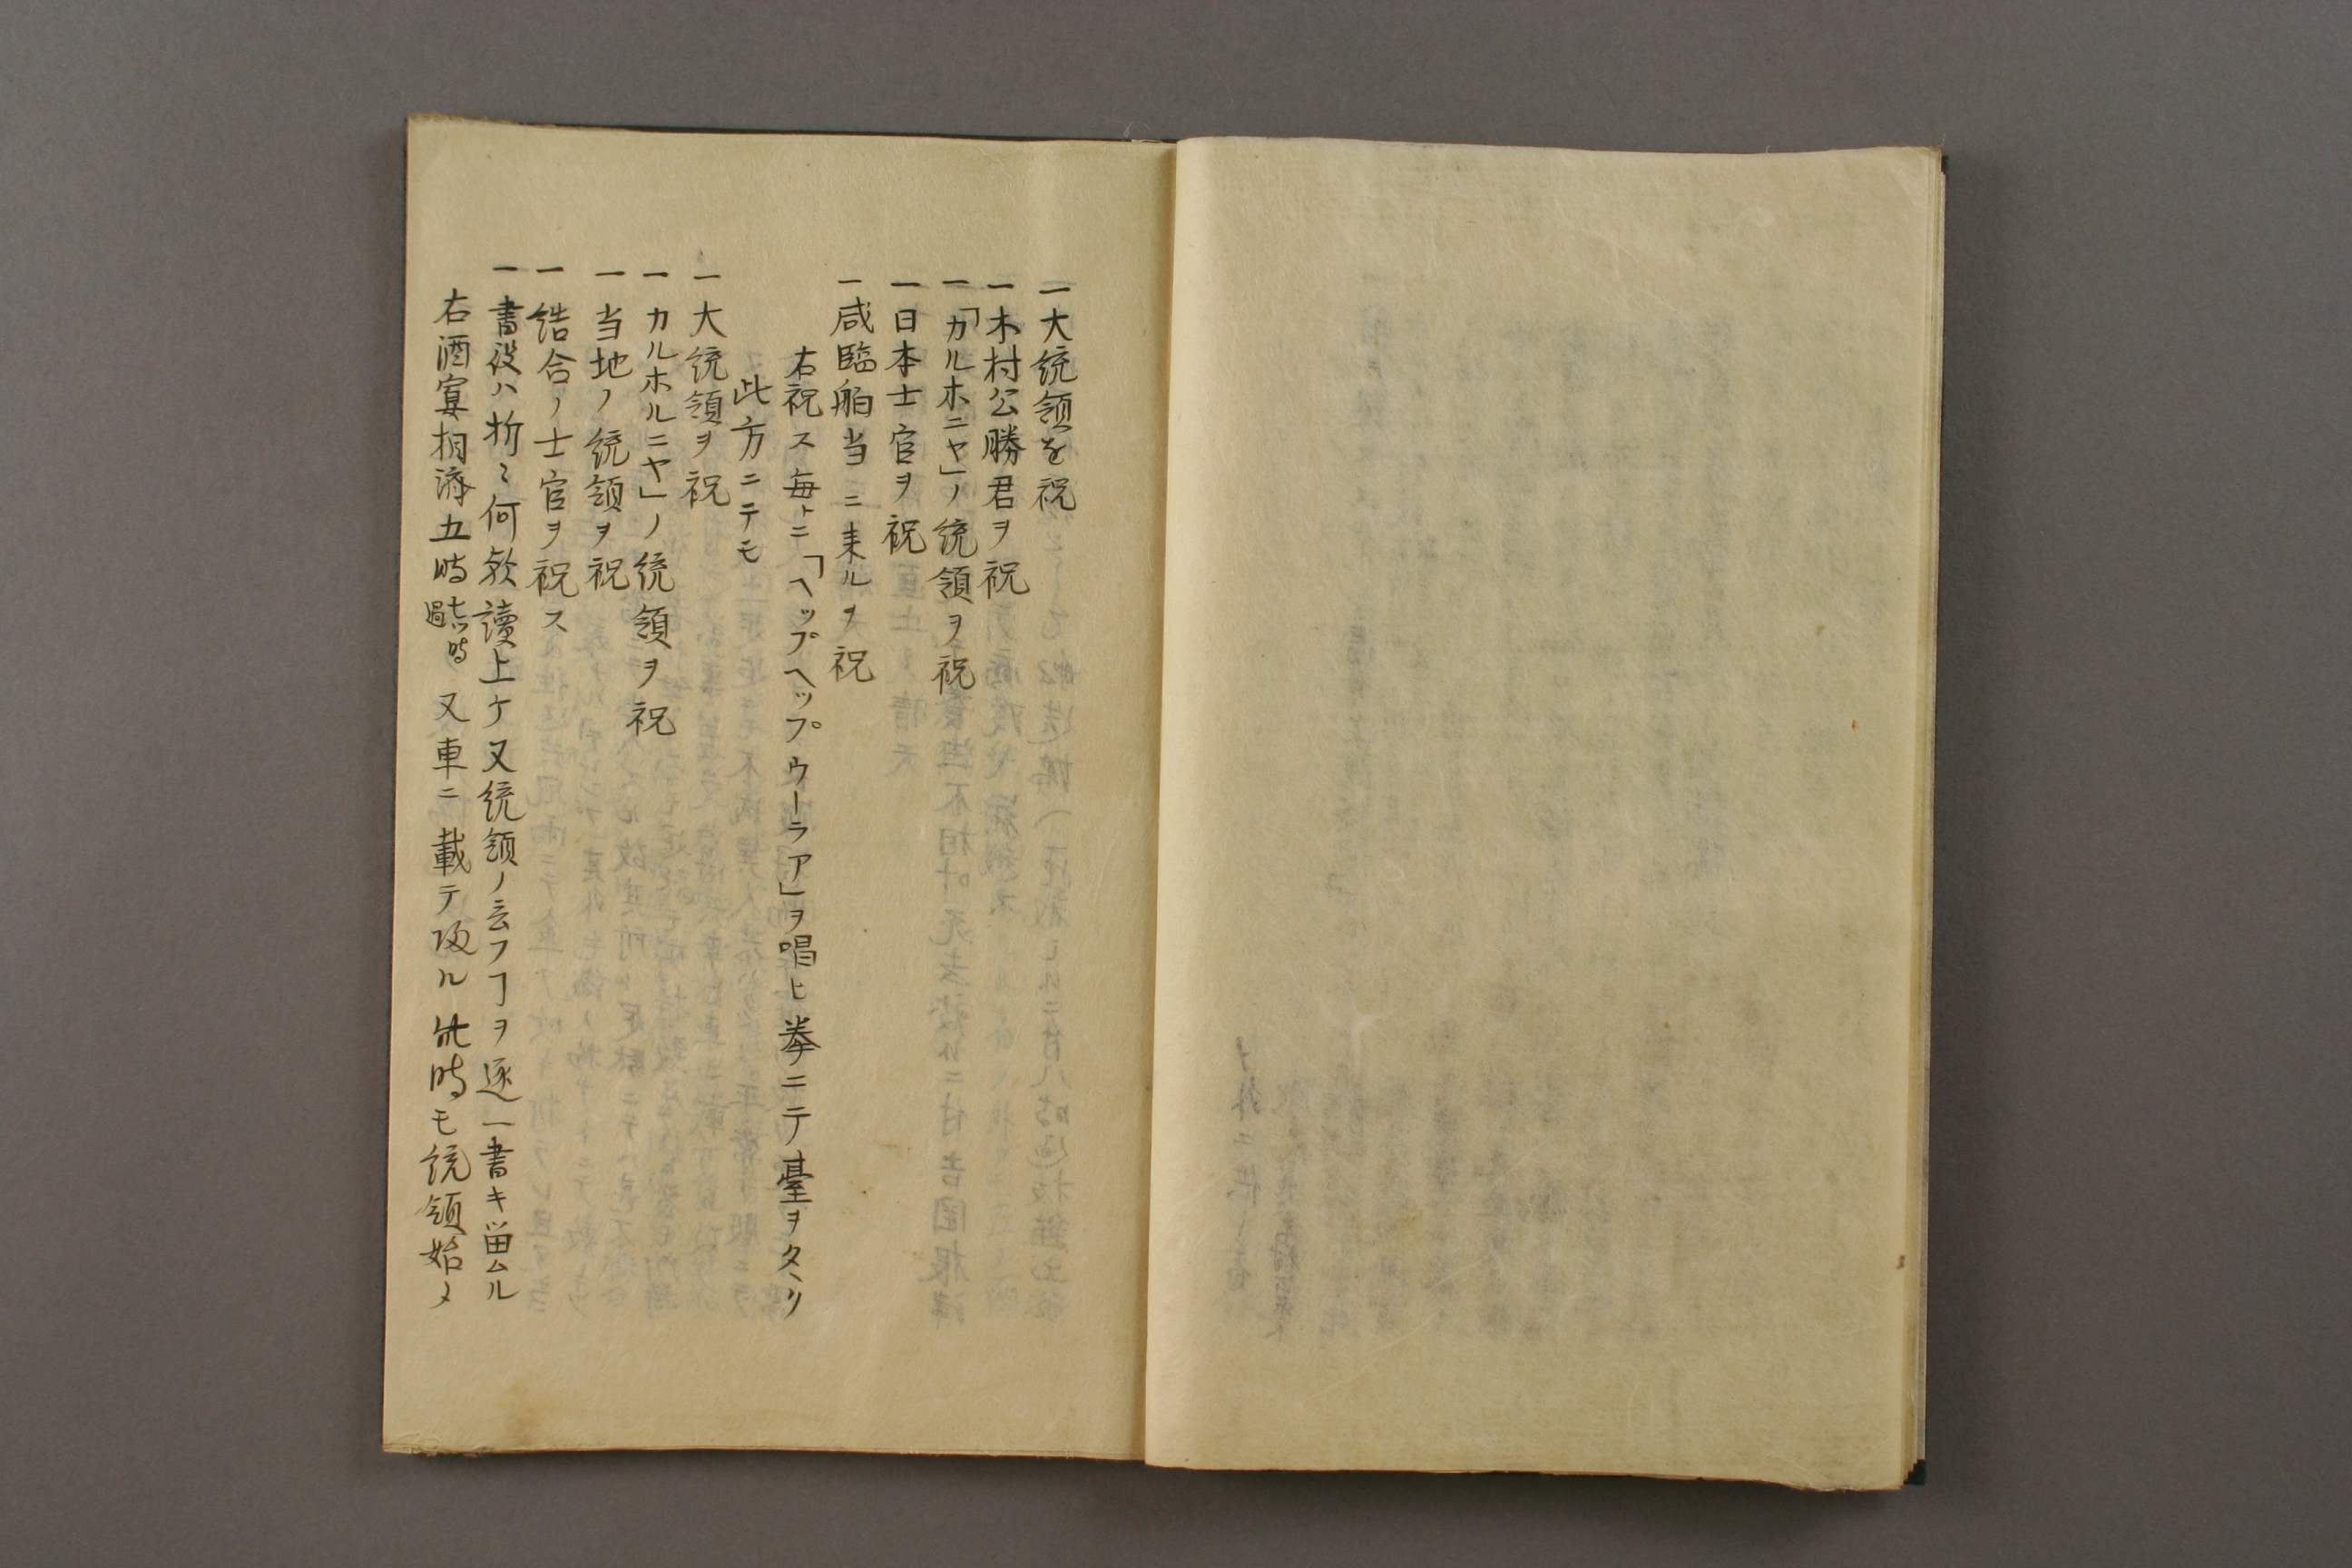 一大統領を祝
一木村公勝君ヲ祝
一「カルホニヤ」ノ統領ヲ祝
一日本士官ヲ祝
一咸臨舶当ニ来ルヲ祝
右祝ス毎トニ「ヘップヘップウーラア」ヲ唱ヒ拳ニテ臺ヲタヽリ
此方ニテモ
一大統領ヲ祝
一カルホルニヤ」ノ統領ヲ祝
一当地ノ統領ヲ祝
一結合ノ士官ヲ祝ス
一書役ハ折々何欤讀上ケ又統領ノ云フヿヲ逐一書キ畄ムル
右酒宴相済五時七ツ時過又車ニ載テ皈ル此時モ統領始メ